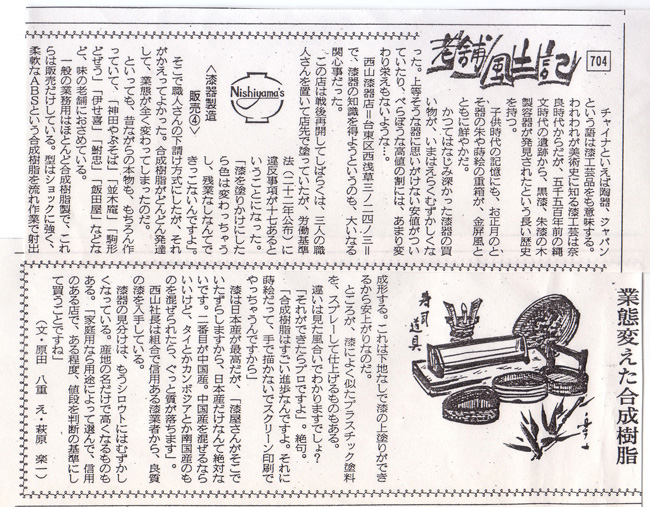 704
老舗風土記
チャイナといえば陶器、ジャパン
という語は漆工芸品をも意味する。
われわれが美術史に知る漆工芸は奈
良時代からだが、五千五百年前の縄
文時代の遺跡から、黒漆、朱漆の木
製容器が発見されたという長い歴史
を持つ。
子供時代の記憶にも、お正月のと
その器の朱や蒔絵の重箱が、金屏風と
ともに鮮やかだ。
かつてはなじみ深かった漆器の買
い物が、いまはえらくむずかしくな
った。上等そうな器に思いがけない安値がつい
ていたり、べらぼうな高値の割には、あまり変
わり栄えもないような…。
西山漆器店＝台東区西浅草三ノ二四ノ三＝
で、漆器の知識を得ようというのも、大いなる
関心事だった。
この店は戦後再開してしばらくは、三人の職
人さんを置いて店先で塗っていたが、労働基準
法（二十二年公布）に
違反事項が十七あると
いうことになった。
「漆を塗りかけにした
ら色は変わっちゃう
し、残業なしなんてで
きっこないんですよ」。
Nishiyama's
〈漆器製造
販売④〉
そこで職人さんの下請け方式にしたが、それ
がかえってよかった。合成樹脂がどんどん発達
して、業態が全く変わってしまったのだ。
といっても、昔ながらの本物も、もちろん作
っていて、「神田やぶそば」「並木庵」「駒形
どぜう」「伊せ喜」「鮒忠」「飯田屋」などな
ど、味の老舗におさめている。
一般の業務用はほとんど合成樹脂製で、これ
らは販売だけしている。型はショックに強く、
柔軟なＡＢＳという合成樹脂を流れ作業で射出
業態変えた合成樹脂
寿司
道具
成形する。これは下地なしで漆の上塗りができ
るから安上がりなのだ。
ところが、漆によく似たプラスチック塗料
を、スプレーして仕上げるものもある。
違いは見た風合いでわかりますでしょ？
「それができたらプロですよ」。絶句。
「合成樹脂はすごい進歩なんですよ。それに
蒔絵だって、手で描かないでスクリーン印刷で
やっちゃうんですから」
漆は日本産が最高だが、「漆屋さんがそこで
いたずらしますから、日本産だけなんて絶対な
いです。二番目が中国産。中国産を混ぜるなら
いいけど、タイとかカンボジアとか南国産のも
のを混ぜられたら、ぐっと質が落ちます」。
西山社長は組合で信用ある漆業者から、良質
の漆を入手している。
漆器の見分けは、もうシロウトにはむずかし
くなっている。産地の名だけで高くなるものも
ある。「家庭用なら用途によって選んで、信用
のある店で、ある程度、値段を判断の基準にし
て買うことですね」
（文・原田 八重 え・萩原 楽一）